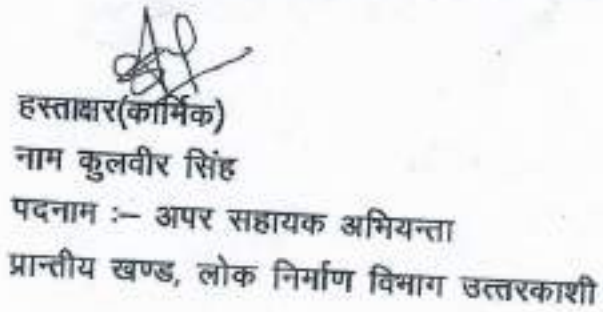 हस्ताक्षर(कार्मिक)
नाम कुलवीर सिंह
पदनाम :– अपर सहायक अभियन्ता
प्रान्तीय खण्ड, लोक निर्माण विभाग उत्तरकाशी